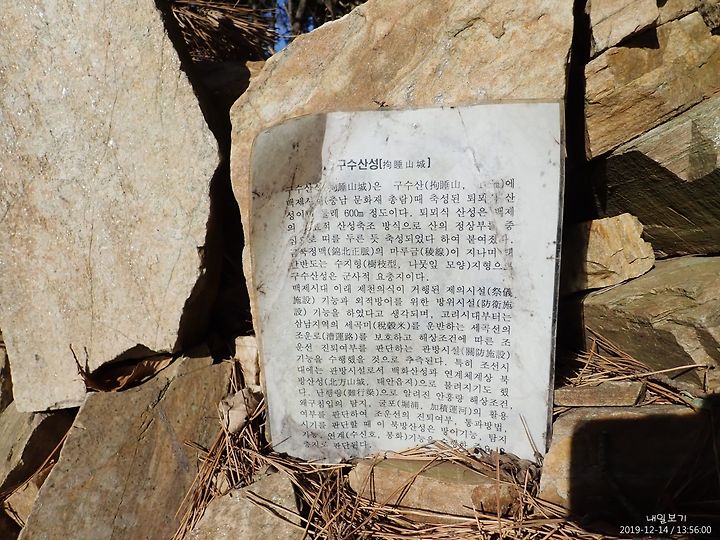 구수산성[拘睡山城]
(拘睡山城)은 구수산(拘睡山, 에
백제시대(충남 문화재 총람)때 축성된 퇴뫼식 산
성이며 둘레 600m 정도이다. 퇴뫼식 산성은 백제
의 산성축조 방식으로 산의 정상부를 중
심으로 띠를 두른 듯 축성되었다 하여 붙여졌다.
금북정맥(錦北正脈)의 마루금(稜線)이 지나며 태
안반도는 수지형(樹枝型, 나뭇잎 모양)지형으로
구수산성은 군사적 요충지이다.
백제시대 이래 제천의식이 거행된 제의시설(祭儀
施設) 기능과 외적방어를 위한 방위시설(防衛施
設) 기능을 하였다고 생각되며, 고려시대부터는
삼남지역의 세곡미(稅穀米)를 운반하는 세곡선의
조운로(漕運路)를 보호하고 해상조건에 따른 조
운선 진퇴여부를 판단하는 관방시설(關防施設)
기능을 수행했을 것으로 추정된다. 특히 조선시
대에는 관방시설로서 백화산성과 연계체계상 북
방산성(北方山城, 태안읍지)으로 불려지기도 했
다. 난행량(難行梁)으로 알려진 안흥량 해상조건,
왜구침입의 탐지, 굴포(堀浦, 加積運河)의 활용
여부를 판단하여 조운선의 진퇴여부, 통과방법,
시기를 판단할 때 이 북방산성은 방어기능, 탐지
기능, 연계(수신호, 봉화)기능을
판단된다.
내일보기
2019-12-14 / 13:56:00